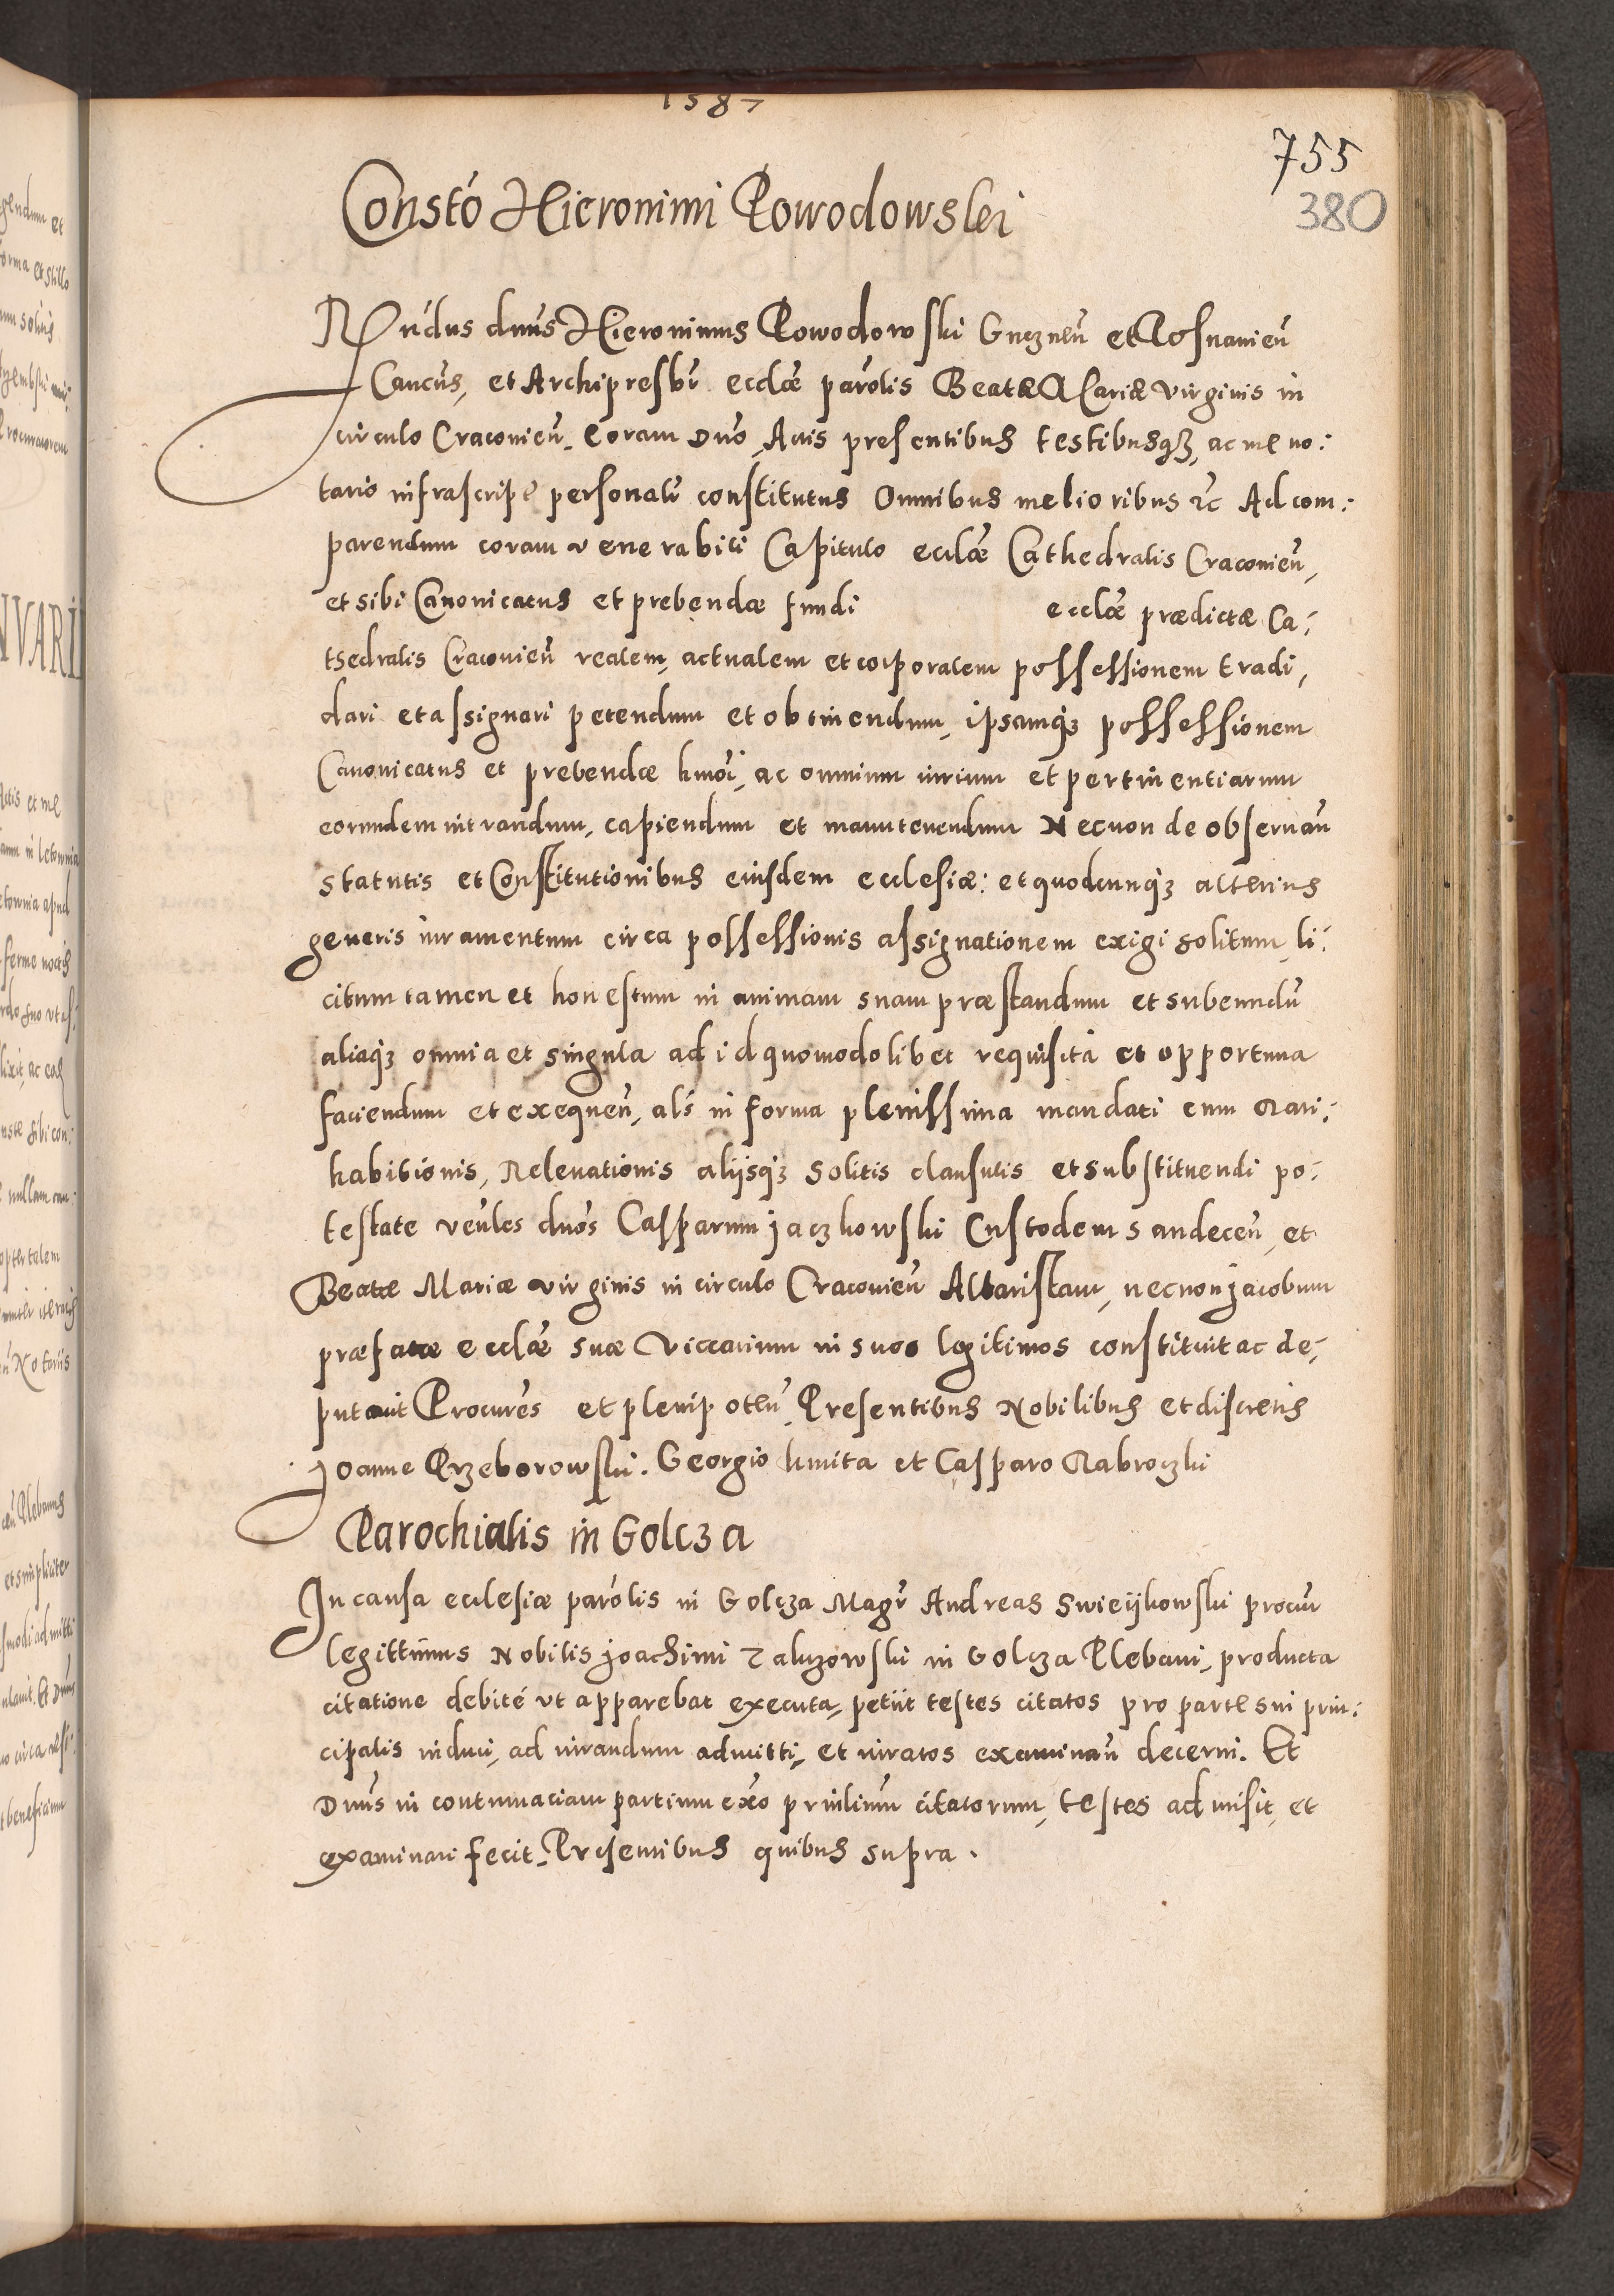 1587
755
380
Constó Hieronimi Powodowski
Rn̄dus dnūs Hieronimus Powodowski Gnezneñ et Posnanieñ
Cancūs, et Archipresbr̄ ecclǣ parōlis Beatæ Mariæ virginis in
circulo Cracovieñ. Coram Dnō, Actis presentibus testibusqȝ, ac me no:
tario infrascript̄ personalr̄ constitutus Omnibus melioribus ꝛc̄ Ad com:
parendum coram venerabili Capitulo ecclǣ Cathedralis Cracovieñ,
et sibi Canonicatus et prebendæ fundi ecclǣ prædictæ Ca:
tsedralis Cracovieñ realem, actualem et corporalem possessionem tradi,
dari et assignari petendum et obtinendum, ipsamqȝ possessionem
Canonicatus et prebendæ hmōi, ac omnium iurium et pertinentiarum
eorumdem intrandum, capiendum et manutenendum Necnon de obseruañ
statutis et Constitutionibus eiusdem ecclesiæ: et quodcunqȝ alterius
generis iuramentum circa possessionis assignationem exigi solitum, li:
citum tamen et honestum in animam suam præstandum et subeundū
aliaqȝ omnia et singula ad id quomodolibet requisita et opportuna
faciendum et exequeñ, alš in forma plenissima mandati cum Rati:
habitionis, Releuationis alijsqȝ solitis clausulis et substituendi po:
testate veñles dnōs Casparum Jaczkowski Custodem Sandeceñ, et
Beatæ Mariæ virginis in circulo Cracovieñ Altaristam, necnon Jacobum
præfatæ ecclǣ suæ Vicearium in suos legitimos constituit ac de:
putauit Procurēs et plenipoteñ, Presentibus Nobilibus et discretis
Joanne Przeborowski. Georgio kmita et Casparo Rabroczki
Parochialis in Golcza
In causa ecclesiæ parōlis in Golcza Magr̄ Andreas Swieijkowski procur̄
legittimus Nobilis Joachimi Taluzowski in Golcza Plebani, producta
citatione debité vt apparebat executa, petiit testes citatos pro parte sui prin:
cipalis induci, ad iurandum admitti, et iuratos examinañ decerni. Et
Dnūs in contumaciam partium ex̄o prinlium̄ citatorum, testes admisit, et
examinari fecit. Presentibus quibus supra.